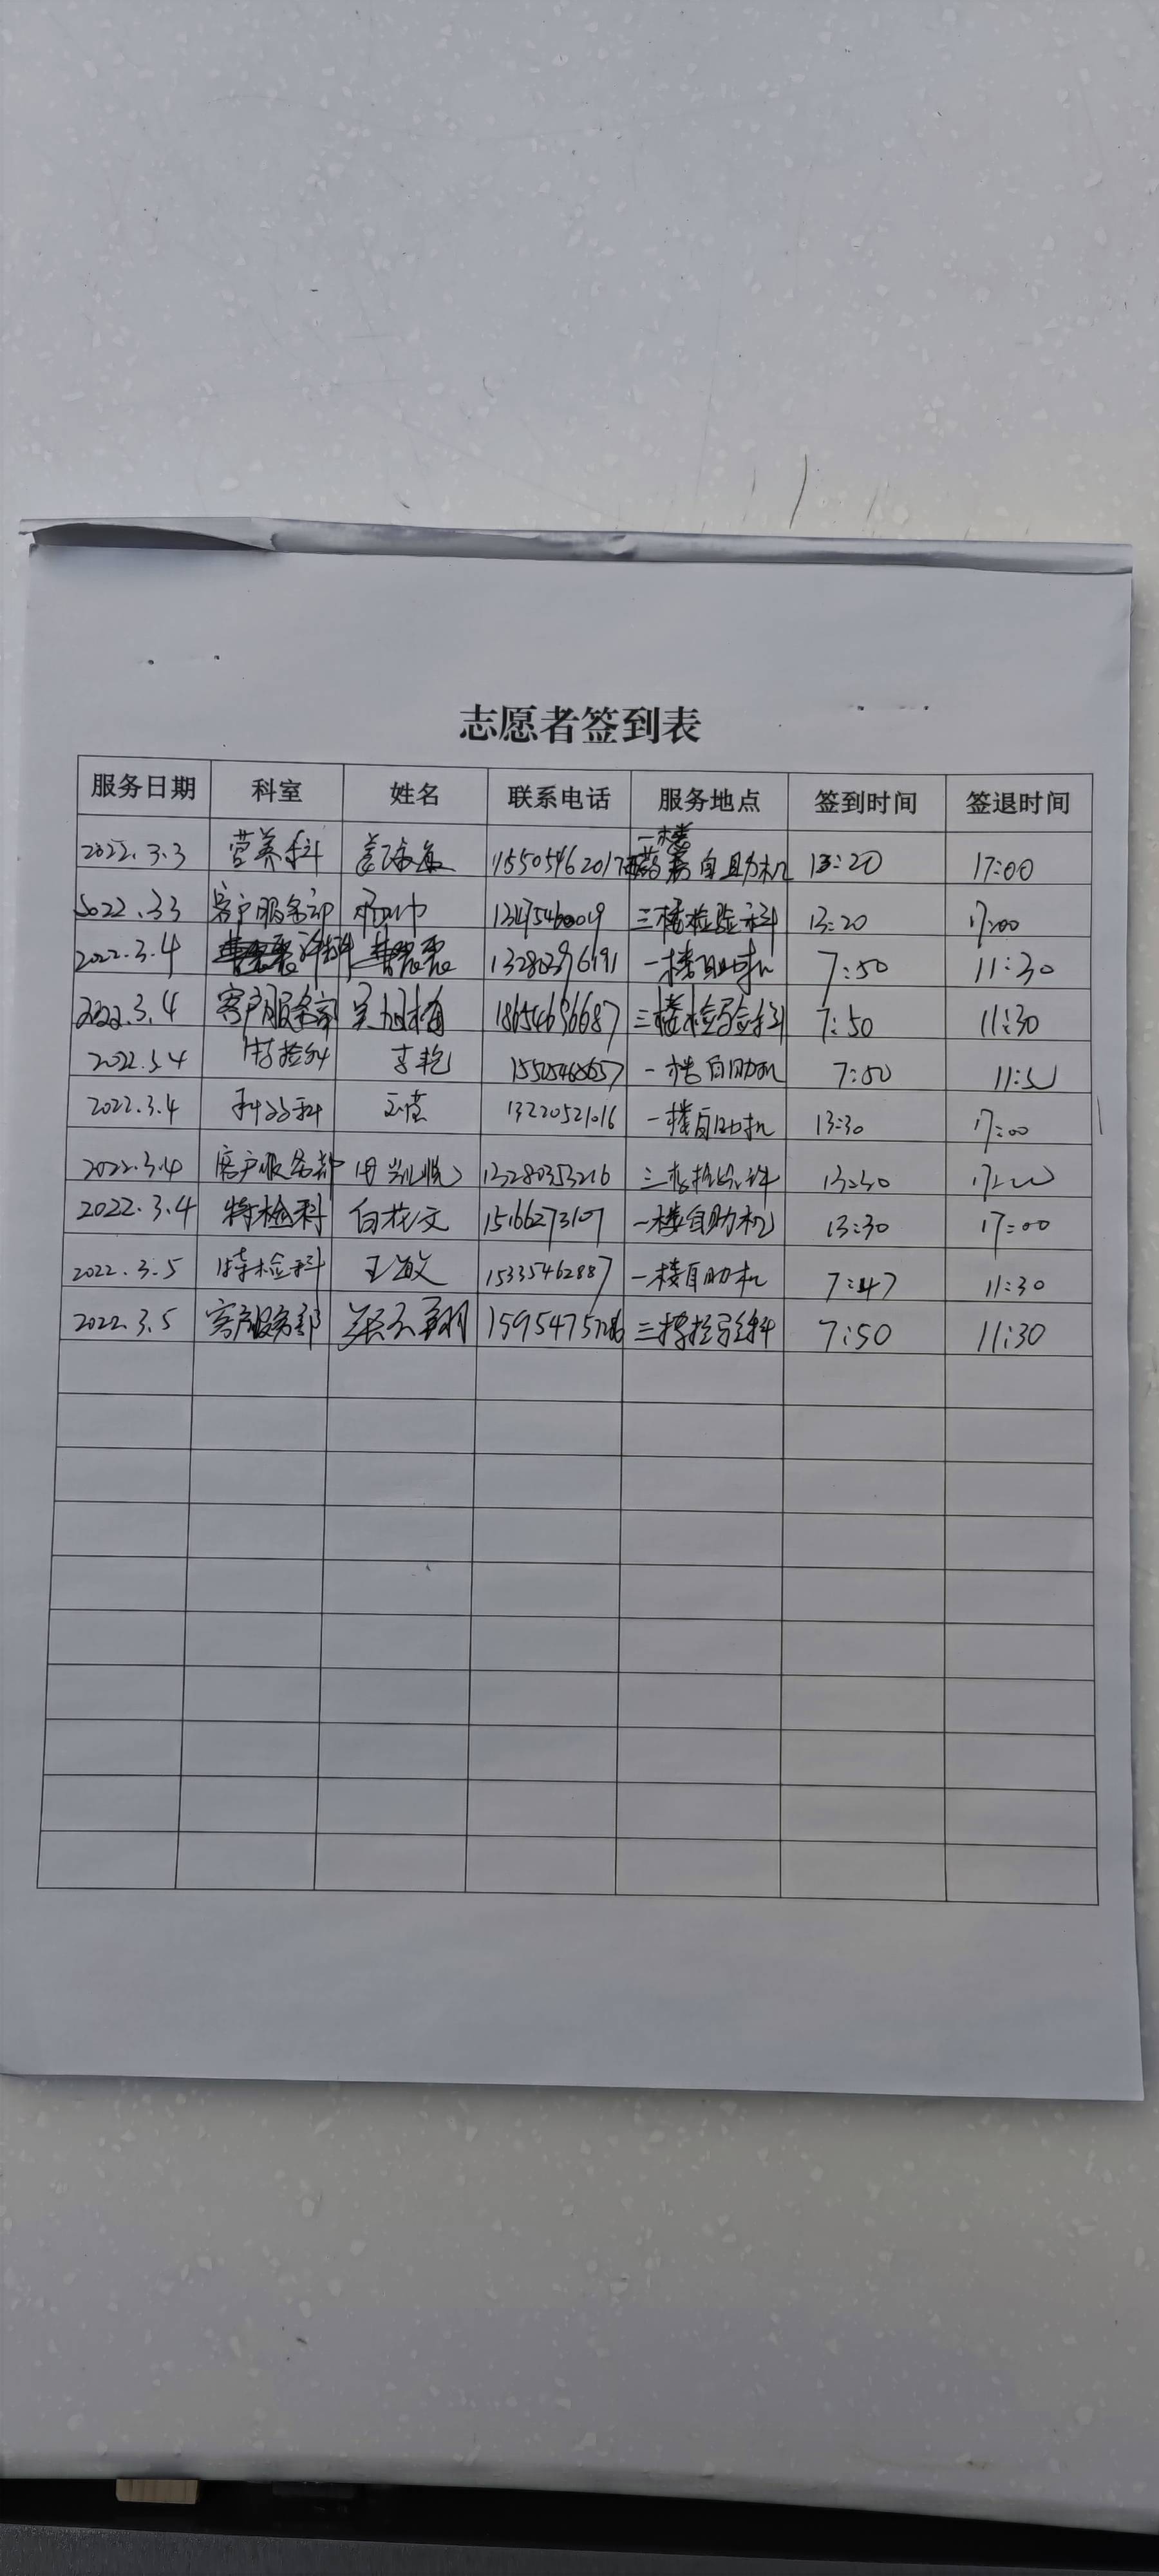 志愿者签到表
服务日期 科室 姓名 联系电话 服务地点 签到时间 签退时间
2022.3.3 营养科 一楼 自助机 13:20 17:00
2022.3.3 客户服务部 三楼检验科 13:20 17:00
2022.3.4 13280396191 一楼自助机 7:50 11:30
2022.3.4 客户服务部 18654686687 三楼检验科 7:50 11:30
2022.3.4 特检科 李艳 一楼自助机 7:50 11:30
2022.3.4 13220521016 一楼自助机 13:30 17:00
2022.3.4 客户服务部 13280353216 三楼检验科 13:30 17:00
2022.3.4 特检科 白花文 15166273107 一楼自助机 13:30 17:00
2022.3.5 特检科 王敏 15335462887 一楼自助机 7:47 11:30
2022.3.5 客户服务部 三楼检验科 7:50 11:30